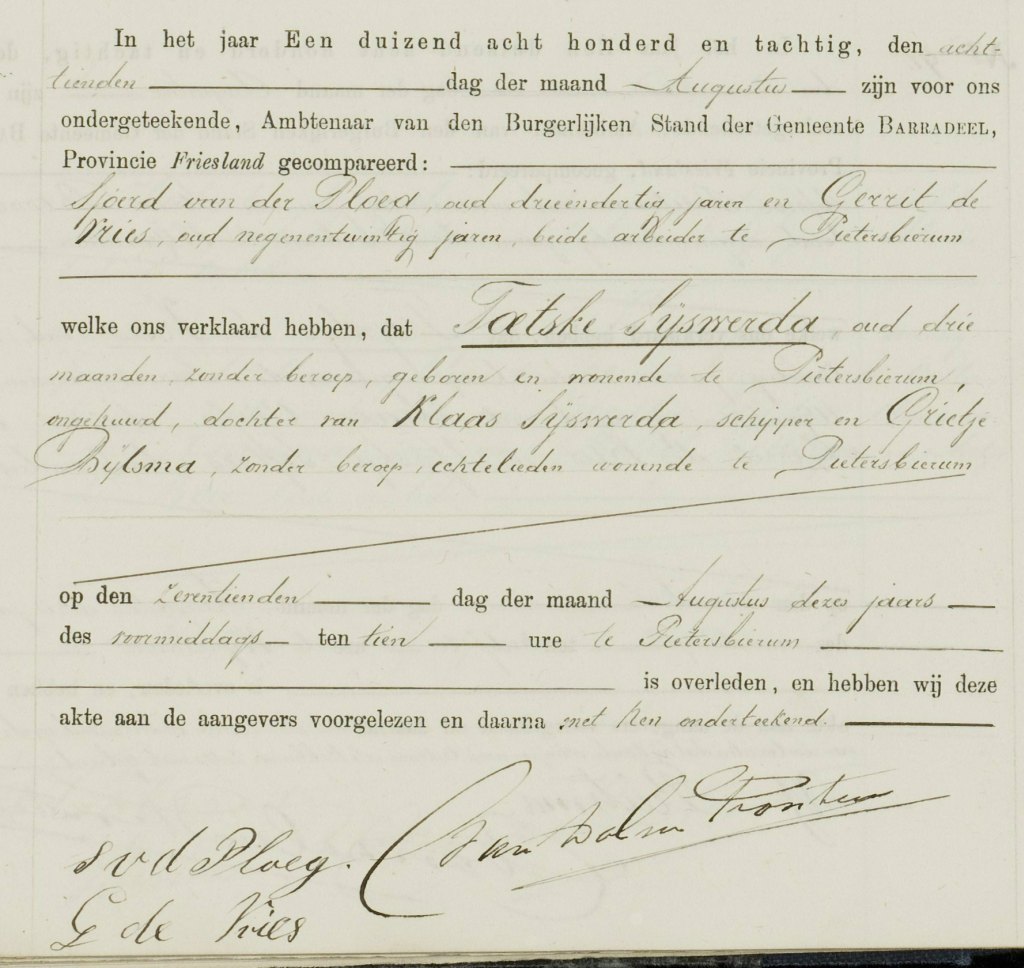 In het jaar Een duizend acht honderd en tachtig, den acht-
tienden dag der maand Augustus zijn voor ons
ondergeteekende, Ambtenaar van den Burgerlijken Stand der Gemeente BARRADEEL,
Provincie Friesland gecompareerd:
Sjoerd van der Ploeg, oud drieendertig jaren en Gerrit de
Vries, oud negenentwintig jaren, beide arbeider te Pietersbierum
welke ons verklaard hebben, dat Tætske Sijswerda, oud drie
maanden, zonder beroep, geboren en wonende te Pietersbierum,
ongehuwd, dochter van Klaas Sijswerda, schipper en Grietje
Bijlsma, zonder beroep, echtelieden wonende te Pietersbierum
op den zeventienden dag der maand Augustus dezes jaars
des voormiddags ten tien ure te Pietersbierum
is overleden, en hebben wij deze
akte aan de aangevers voorgelezen en daarna met hen onderteekend.
S v d Ploeg.
G de Vries